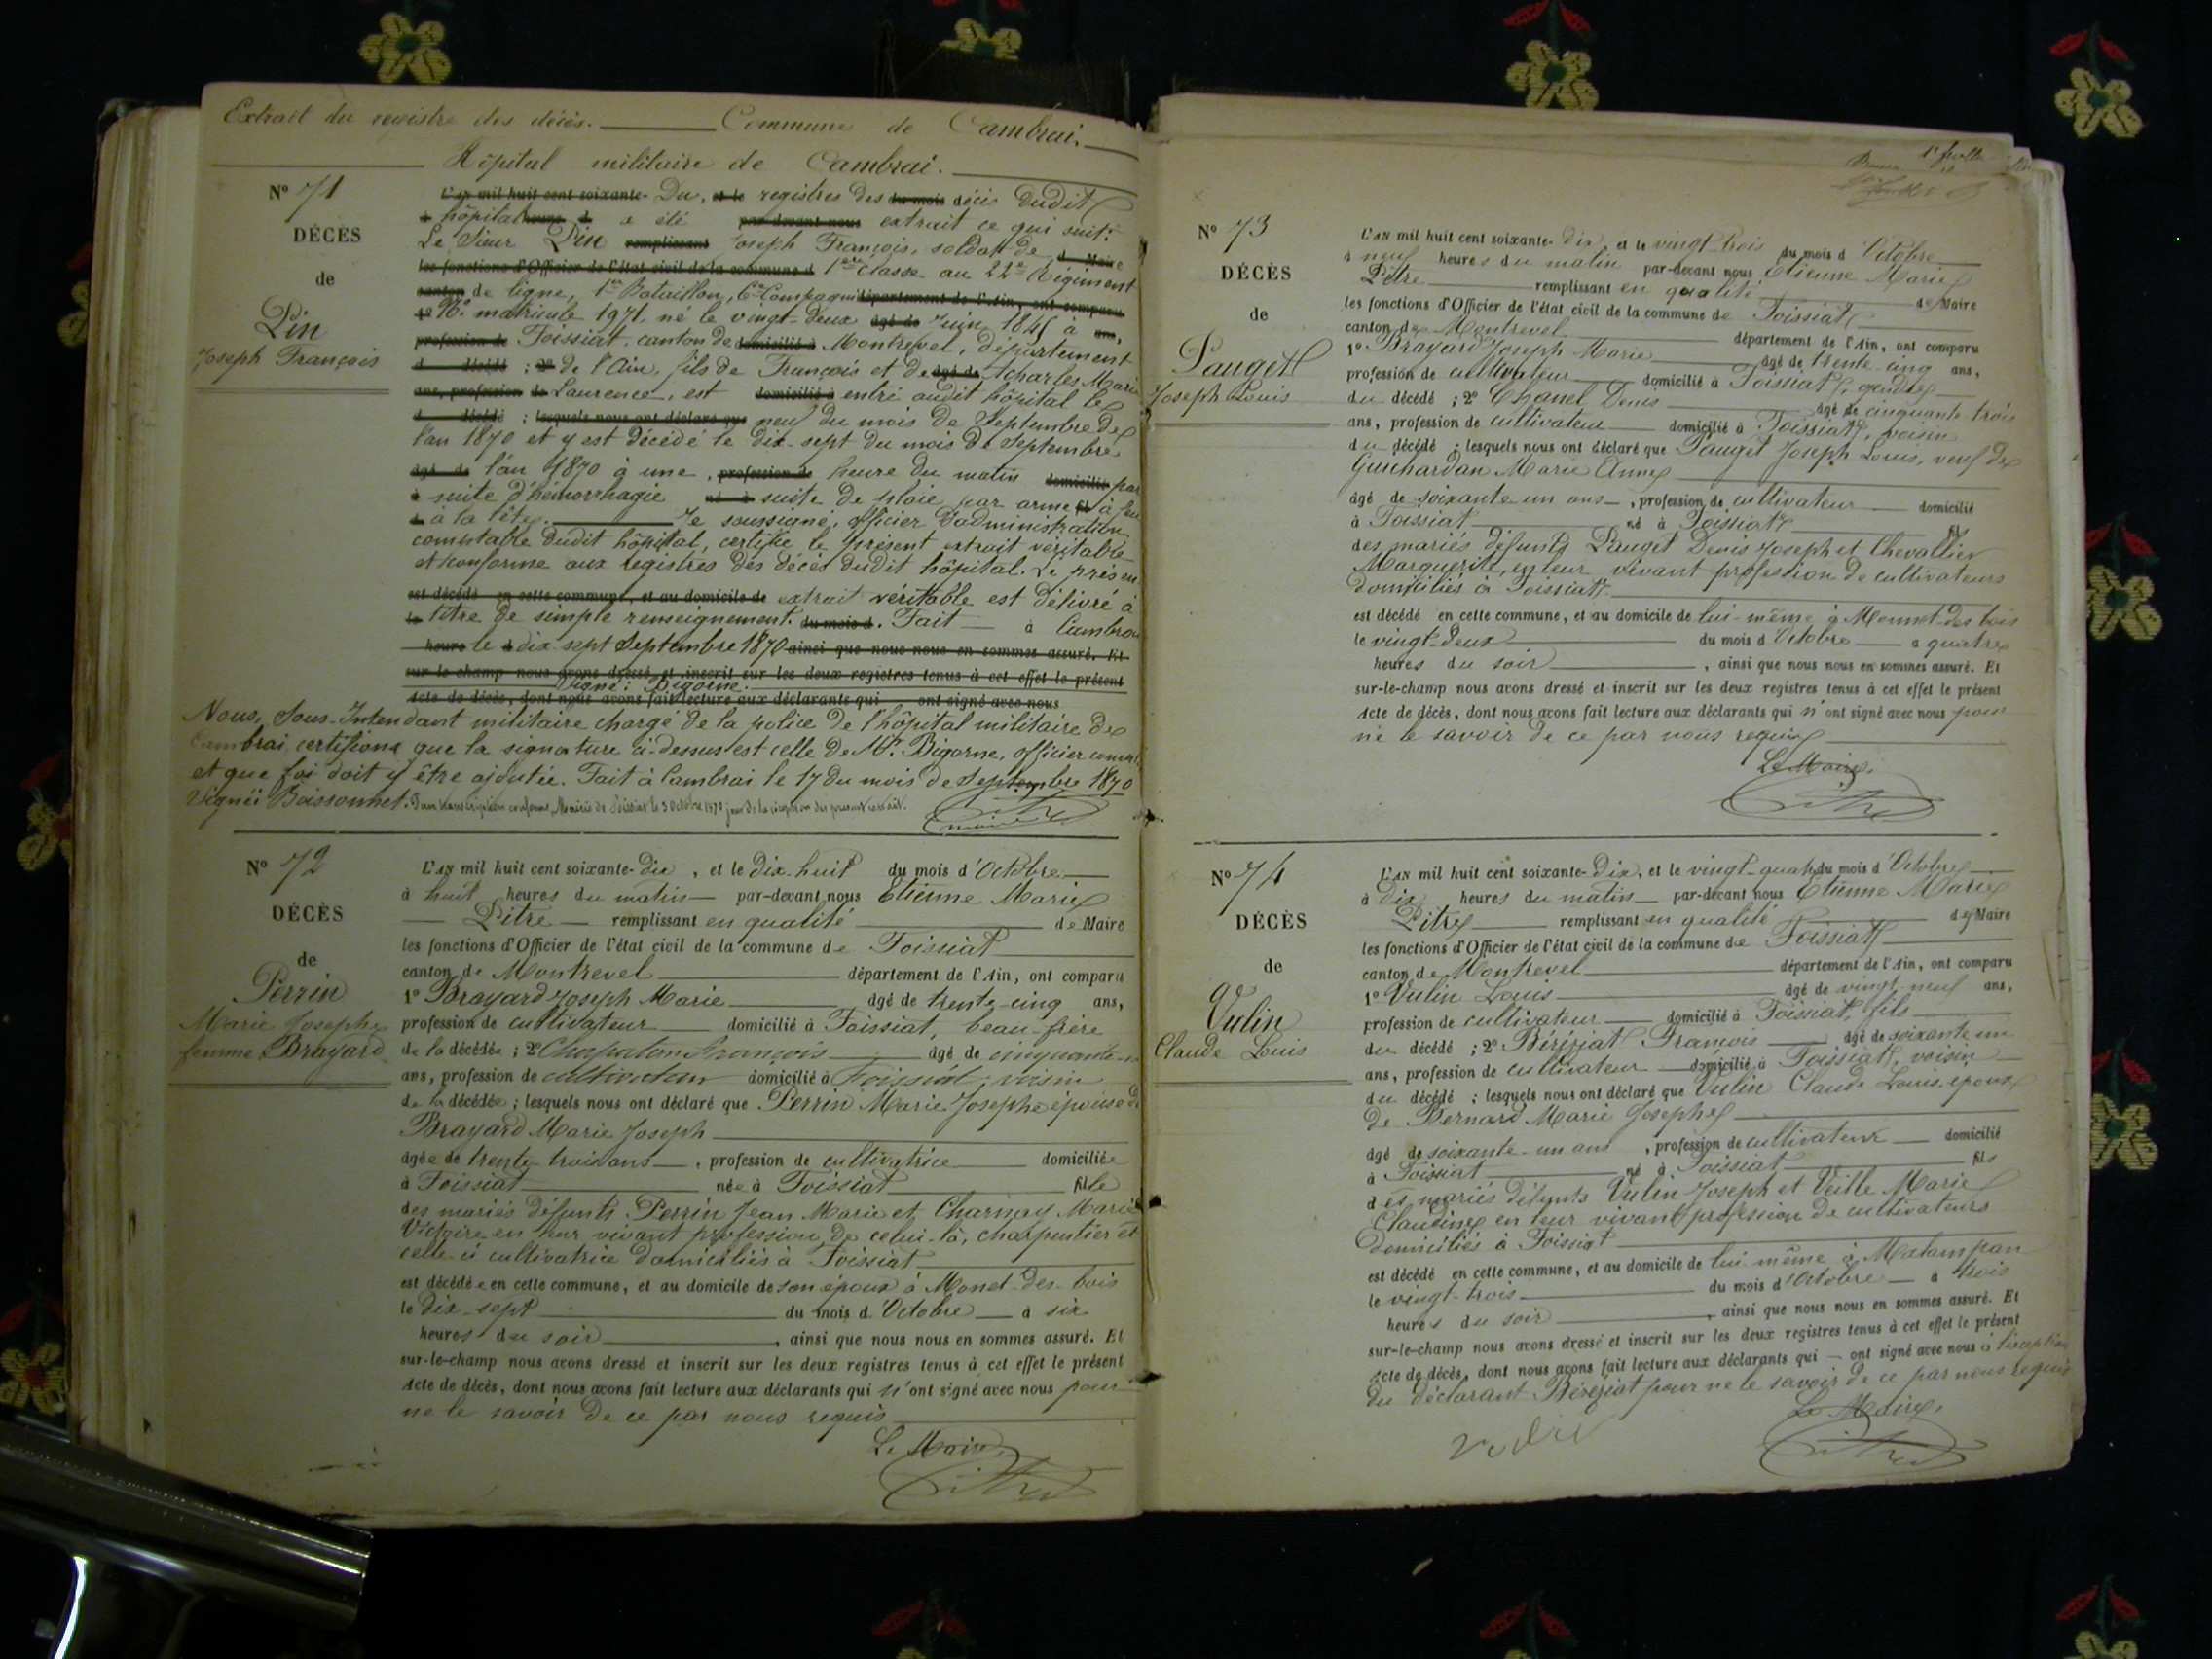 Extrait du registre des décès. Commune de Cambrai.
Hôpital militaire de Cambrai.
N° 71
DÉCÈS
de
Pin
Joseph François
L'AN mil huit cent soixante- Du, et le registres des du mois décès dudit
à hôpital heures d a été par-devant nous extrait ce qui suit:
Le Sieur Pin remplissant Joseph François, soldat de d Maire
les fonctions d'Officier de l'état civil de la commune d 1ère classe au 22e Régiment
canton de ligne, 1er Bataillon, 6e Compagnie département de l'Ain, ont comparu
1° N° matricule 1971, né le vingt-deux âgé de Juin 1845 à ans,
profession de Foissiat, canton de domicilié à Montrevel, département
d décédé ; 2° de l'Ain, fils de François et de âgé de Acharles Marie
ans, profession de Laurence, est domicilié à entré audit hôpital le
d décédé ; lesquels nous ont déclaré que neuf du mois de Septembre de
l'an 1870 et y est décédé le dix-sept du mois de Septembre
âgé de l'an 1870 à une , profession de heure du matin domicilié par
à suite d'hémorrhagie né à suite de plaie par arme fil à feu
d à la tête. Je soussigné, officier d'administration
comptable dudit hôpital, certifie le présent extrait véritable
et conforme aux registres des décès dudit hôpital. Le présent
est décédé en cette commune, et au domicile de extrait véritable est délivré à
le titre de simple renseignement. du mois d . Fait à Cambrai
heure le à dix-sept Septembre 1870 ainsi que nous nous en sommes assuré. Et
sur-le-champ nous avons dressé et inscrit sur les deux registres tenus à cet effet le présent
Signé: Bigorne.
acte de décès, dont nous avons fait lecture aux déclarants qui ont signé avec nous
Nous, Sous-Intendant militaire chargé de la police de l'hôpital militaire de
Cambrai certifions que la signature ci-dessus est celle de Mr. Bigorne, officier compt.
et que foi doit y être ajoutée. Fait à Cambrai le 17 du mois de Septembre 1870
Signé: Boissonnet. Pour transcription conforme, Mairie de Foissiat le 3 Octobre 1870 jour de la réception du présent extrait.
N° 72
DÉCÈS
de
Perrin
Marie Josephe
femme Brayard
L'AN mil huit cent soixante-dix , et le dix-huit du mois d'Octobre
à huit heures du matin par-devant nous Etienne Marie
Pitre remplissant en qualité de Maire
les fonctions d'Officier de l'état civil de la commune de Foissiat
canton de Montrevel département de l'Ain, ont comparu
1° Brayard Joseph Marie âgé de trente-cinq ans,
profession de cultivateur domicilié à Foissiat, beau-frère
de la décédée ; 2° Chapatan François âgé de cinquante-
ans, profession de cultivateur domicilié à Foissiat, voisin
de la décédée ; lesquels nous ont déclaré que Perrin Marie Josephe épouse de
Brayard Marie Joseph
âgée de trente-trois ans , profession de cultivatrice domiciliée
à Foissiat née à Foissiat fille
des mariés défunts Perrin Jean Marie et Charnay Marie
Victoire en leur vivant profession de celui-là, charpentier et
celle-ci cultivatrice domiciliés à Foissiat
est décédée en cette commune, et au domicile de son époux à Monet-des-bois
le dix-sept du mois d'Octobre à six
heures du soir , ainsi que nous nous en sommes assuré. Et
sur-le-champ nous avons dressé et inscrit sur les deux registres tenus à cet effet le présent
acte de décès, dont nous avons fait lecture aux déclarants qui n'ont signé avec nous pour
ne le savoir de ce par nous requis
Le Maire,
Pitre
N° 73
DÉCÈS
de
Pauget
Joseph Louis
L'AN mil huit cent soixante-dix, et le vingt-trois du mois d'Octobre
à neuf heures du matin par-devant nous Etienne Marie
Pitre remplissant en qualité de Maire
les fonctions d'Officier de l'état civil de la commune de Foissiat
canton de Montrevel département de l'Ain, ont comparu
1° Brayard Joseph Marie âgé de trente-cinq ans,
profession de cultivateur domicilié à Foissiat, gendre
du décédé ; 2° Chanel Denis âgé de cinquante-trois
ans, profession de cultivateur domicilié à Foissiat, voisin
du décédé ; lesquels nous ont déclaré que Pauget Joseph Louis, veuf de
Guichardan Marie Anne
âgé de soixante-un ans , profession de cultivateur domicilié
à Foissiat né à Foissiat fils
des mariés défunts Pauget Denis Joseph et Chevallier
Marguerite, en leur vivant profession de cultivateurs
domiciliés à Foissiat
est décédé en cette commune, et au domicile de lui-même à Monnet-des-bois
le vingt-deux du mois d'Octobre à quatre
heures du soir , ainsi que nous nous en sommes assuré. Et
sur-le-champ nous avons dressé et inscrit sur les deux registres tenus à cet effet le présent
acte de décès, dont nous avons fait lecture aux déclarants qui n'ont signé avec nous pour
ne le savoir de ce par nous requis
Le Maire,
Pitre
N° 74
DÉCÈS
de
Vulin
Claude Louis
L'AN mil huit cent soixante-dix, et le vingt-quatre du mois d'Octobre
à dix heures du matin par-devant nous Etienne Marie
Pitre remplissant en qualité de Maire
les fonctions d'Officier de l'état civil de la commune de Foissiat
canton de Montrevel département de l'Ain, ont comparu
1° Vulin Louis âgé de vingt-neuf ans,
profession de cultivateur domicilié à Foissiat, fils
du décédé ; 2° Béréziat François âgé de soixante-un
ans, profession de cultivateur domicilié à Foissiat, voisin
du décédé ; lesquels nous ont déclaré que Vulin Claude Louis, époux
de Bernard Marie Josephe
âgé de soixante-un ans , profession de cultivateur domicilié
à Foissiat né à Foissiat fils
des mariés défunts Vulin Joseph et Veille Marie
Claudine en leur vivant profession de cultivateurs
domiciliés à Foissiat
est décédé en cette commune, et au domicile de lui-même à Malampan
le vingt-trois du mois d'Octobre à trois
heures du soir , ainsi que nous nous en sommes assuré. Et
sur-le-champ nous avons dressé et inscrit sur les deux registres tenus à cet effet le présent
acte de décès, dont nous avons fait lecture aux déclarants qui ont signé avec nous à l'exception
du déclarant Béréziat pour ne le savoir de ce par nous requis
Le Maire,
Pitre